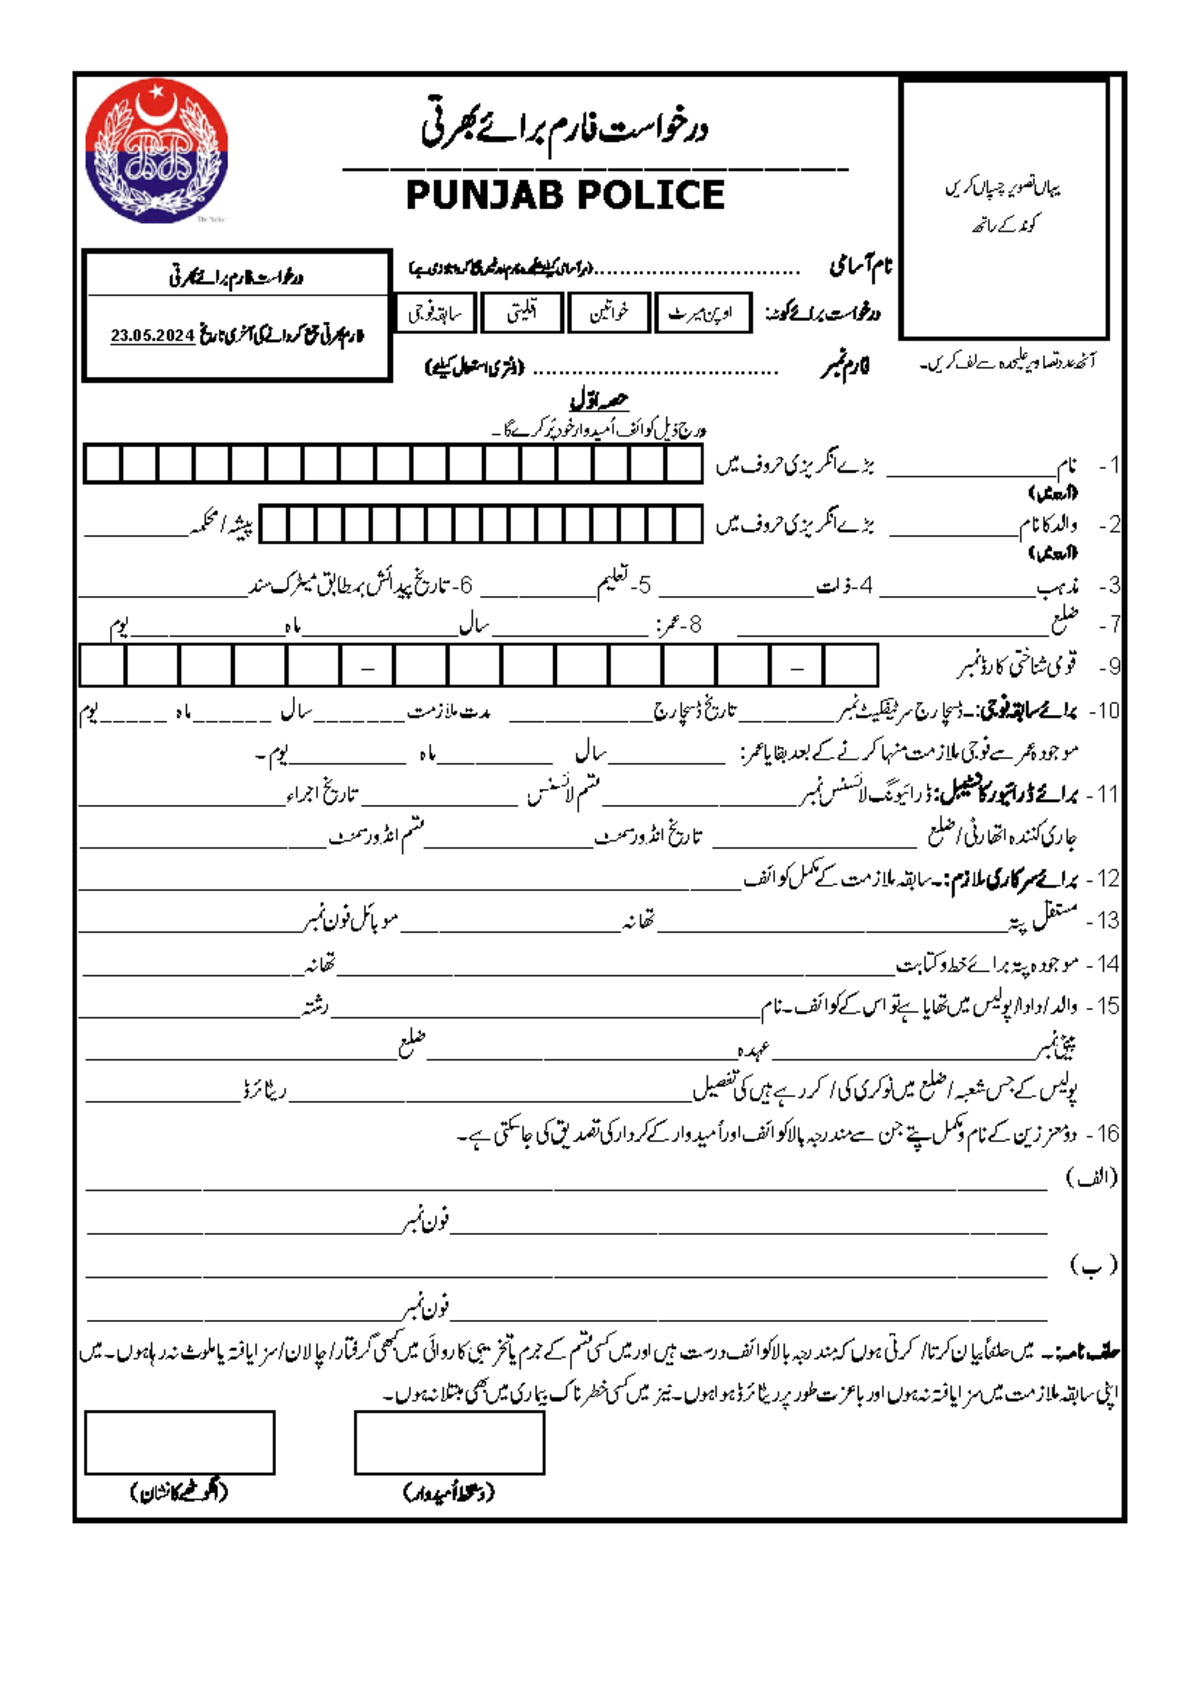 درخواست فارم برائے بھرتی
PUNJAB POLICE
یہاں تصویر چسپاں کریں
گوند کے ساتھ
نام آسامی ............................... (ہر آسامی کیلئے علیحدہ فارم اور فیس جمع کروانا ضروری ہے)
درخواست فارم برائے بھرتی
فارم بھرتی جمع کروانے کی آخری تاریخ 23.05.2024
درخواست برائے کوٹہ: اوپن میرٹ خواتین اقلیتی سابقہ فوجی
فارم نمبر ................................... (دفتری استعمال کیلئے)
آٹھ عدد تصاویر علیحدہ سے لف کریں۔
حصہ اوّل
درج ذیل کوائف اُمیدوار خود پُر کرے گا۔
1- نام ____________ بڑے انگریزی حروف میں
(اُردو میں)
2- والد کا نام __________ بڑے انگریزی حروف میں پیشہ / محکمہ ________
(اُردو میں)
3- مذہب ____________ 4- ذات ____________ 5- تعلیم _________ 6- تاریخ پیدائش بمطابق میٹرک سند _____________
7- ضلع ________________________ 8- عمر: ____________ سال ____________ ماہ ____________ یوم
9- قومی شناختی کارڈ نمبر – –
10- برائے سابقہ فوجی:۔ ڈسچارج سرٹیفکیٹ نمبر _______ تاریخ ڈسچارج ___________ مدت ملازمت _______ سال ______ ماہ _____ یوم
موجودہ عمر سے فوجی ملازمت منہا کرنے کے بعد بقایا عمر: _________ سال _________ ماہ _________ یوم۔
11- برائے ڈرائیور کانسٹیبل: ڈرائیونگ لائسنس نمبر _______________ قسم لائسنس ____________ تاریخ اجراء ________________
جاری کنندہ اتھارٹی / ضلع ________________ تاریخ انڈورسمنٹ _____________ قسم انڈورسمنٹ ___________________
12- برائے سرکاری ملازم:۔ سابقہ ملازمت کے مکمل کوائف ___________________________________________________
13- مستقل پتہ ___________________________ تھانہ _________________ موبائل فون نمبر _________________
14- موجودہ پتہ برائے خط و کتابت ___________________________________________ تھانہ _________________
15- والد/دادا/پولیس میں تھا یا ہے تو اس کے کوائف۔ نام _________________________________ رشتہ _________________
پیٹی نمبر ____________________ عہدہ ________________________ ضلع ________________________
پولیس کے جس شعبہ / ضلع میں نوکری کی / کر رہے ہیں کی تفصیل _______________________________ ریٹائرڈ ____________
16- دو معززین کے نام و مکمل پتے جن سے مندرجہ بالا کوائف اور اُمیدوار کے کردار کی تصدیق کی جا سکتی ہے۔
(الف) __________________________________________________________________________
______________________________________________ فون نمبر ________________________
(ب) __________________________________________________________________________
______________________________________________ فون نمبر ________________________
حلف نامہ:۔ میں حلفاً بیان کرتا/ کرتی ہوں کہ مندرجہ بالا کوائف درست ہیں اور میں کسی قسم کے جرم یا تخریبی کاروائی میں کبھی گرفتار/ چالان/ سزا یافتہ یا ملوث نہ رہا ہوں۔ میں
اپنی سابقہ ملازمت میں سزا یافتہ نہ ہوں اور باعزت طور پر ریٹائرڈ ہوا ہوں۔ نیز میں کسی خطرناک بیماری میں بھی مبتلا نہ ہوں۔
(دستخط اُمیدوار) (انگوٹھے کا نشان)